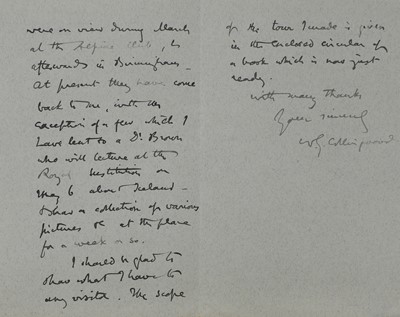 were on view during March
at the Alpine Club, &
afterwards in Birmingham –
At present they have come
back to me, with the
exception of a few which I
have lent to a Dr. Brown
who will lecture at the
Royal Institution on
May 6 about Iceland –
& has a collection of various
pictures &c at the place
for a week or so.
I should be glad to
show what I have to
any visitor. The scope
of the tour I made is given
in the enclosed circular of
a book which is now just
ready.
With many thanks
Yours sincerely
W G Collingwood